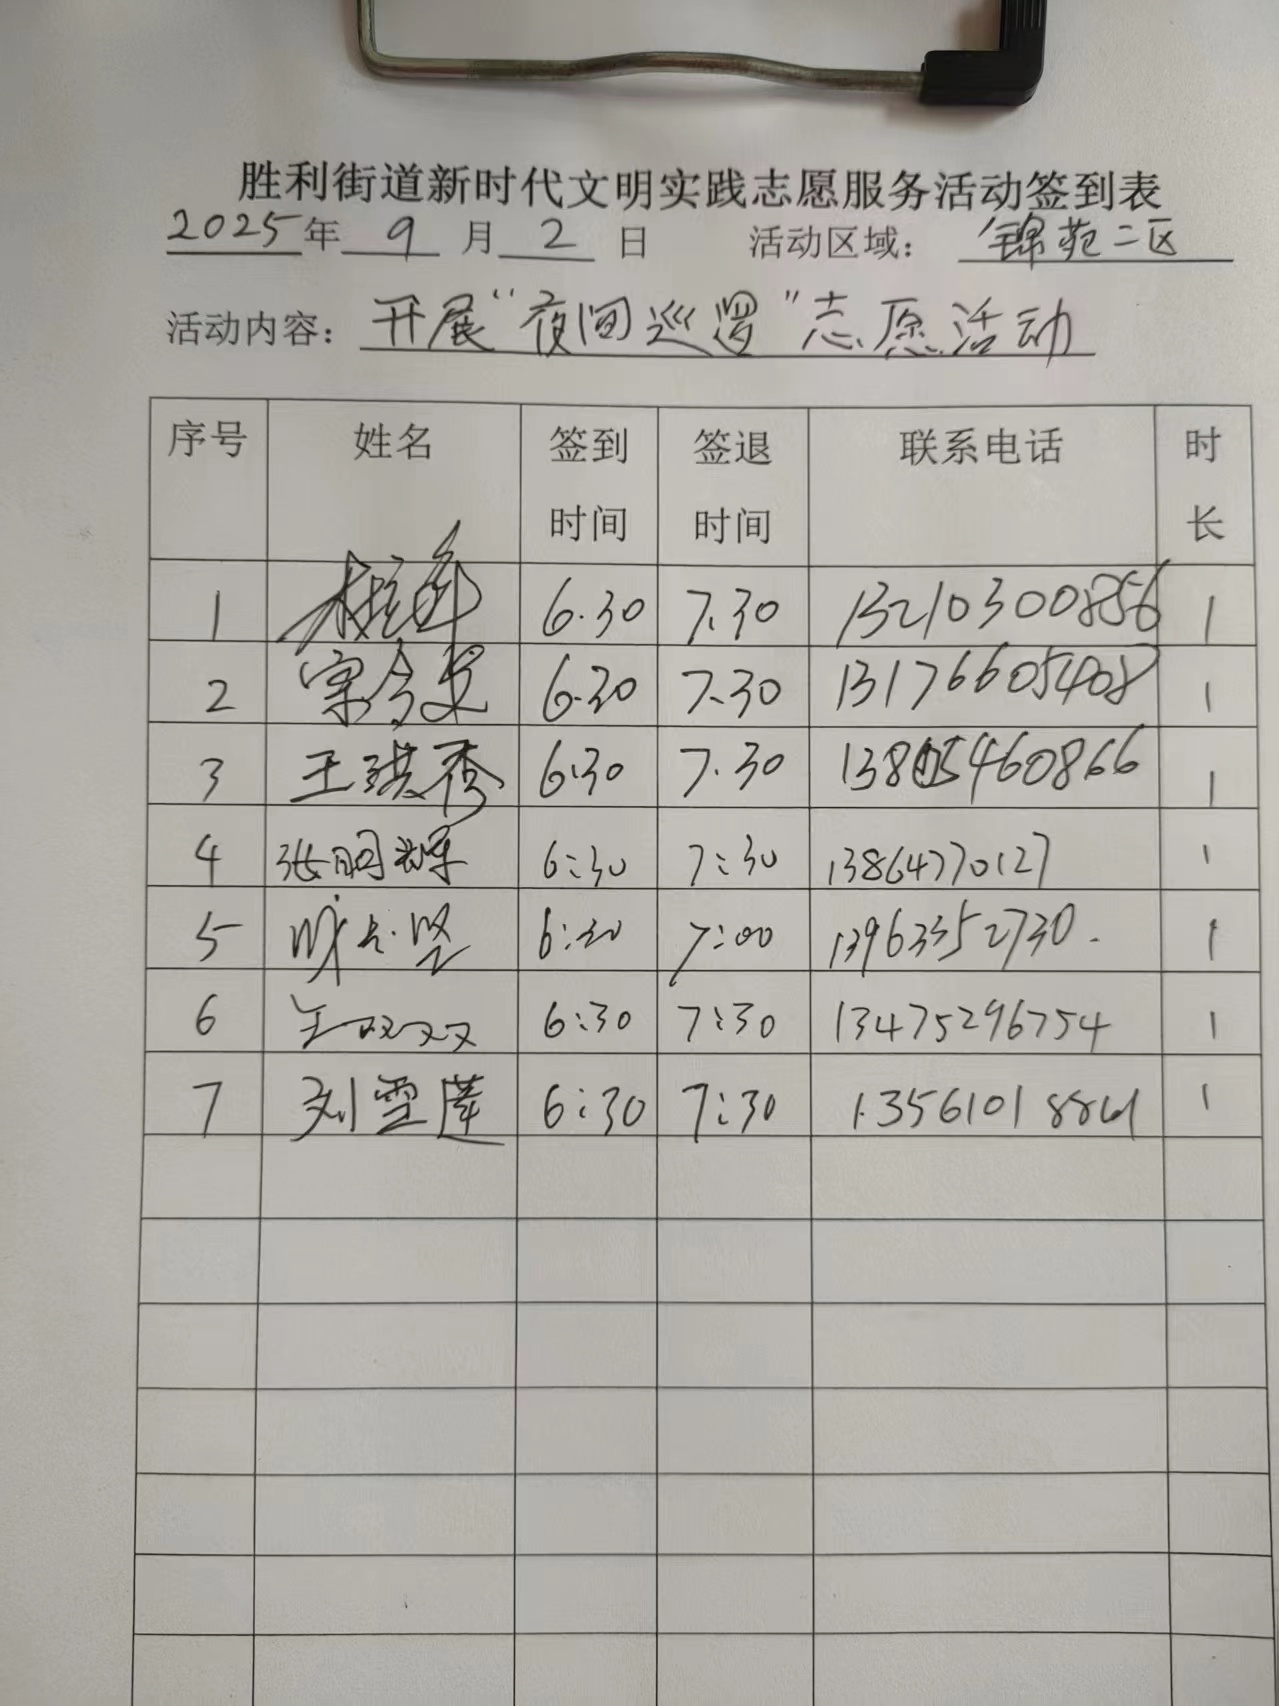 胜利街道新时代文明实践志愿服务活动签到表
2025年 9 月 2 日 活动区域: 锦苑二区
活动内容: 开展“夜间巡逻”志愿活动
序号 姓名 签到时间 签退时间 联系电话 时长
1 6.30 7.30 13210300856 1
2 6.30 7.30 13176605408 1
3 王琪秀 6.30 7.30 13805460866 1
4 张明辉 6:30 7:30 13864770127 1
5 6:30 7:00 13963352730. 1
6 王双双 6:30 7:30 13475296754 1
7 刘雪莲 6:30 7:30 1